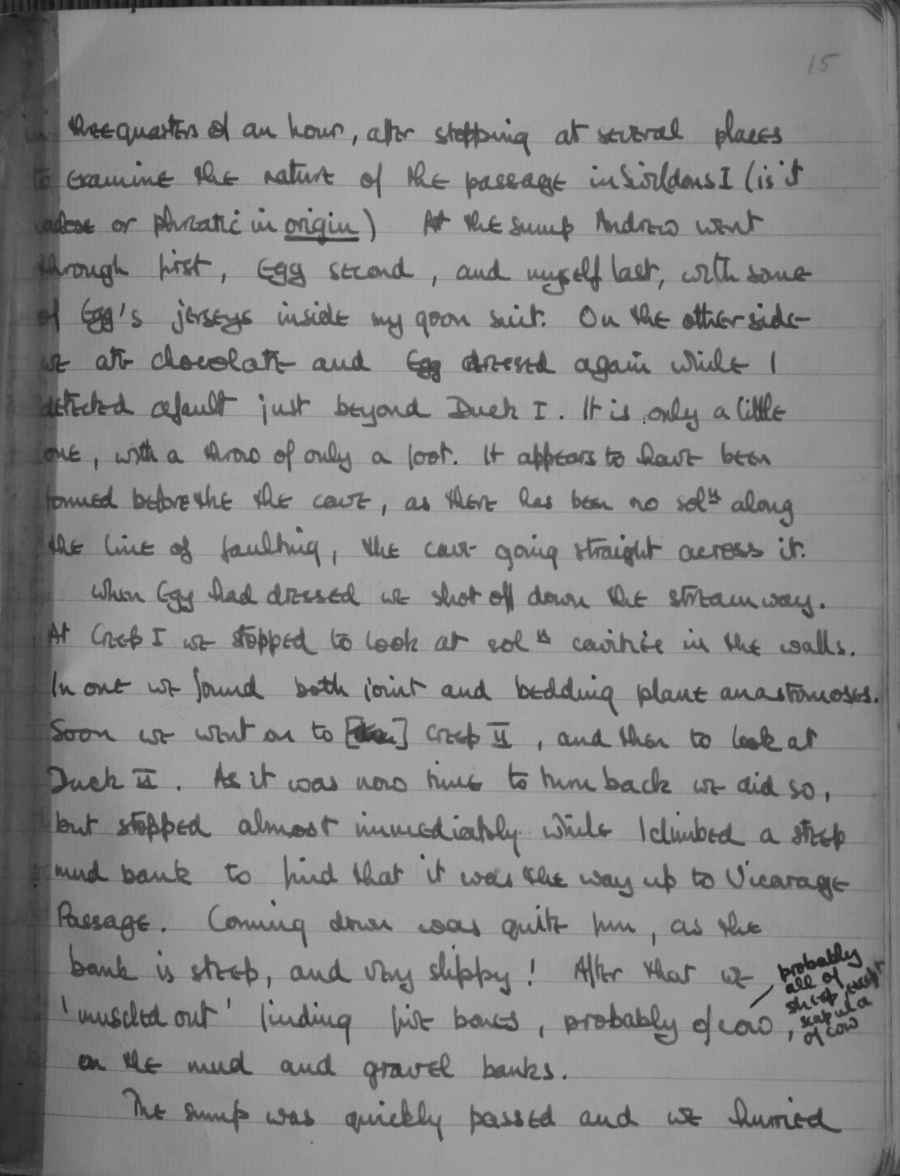 15
in threequarters of an hour, after stopping at several places
to examine the nature of the passage in Swildons I (is it
vadose or phreatic in origin) At the sump Andrew went
through first, Egg second, and myself last, with some
of Egg's jerseys inside my goon suit. On the other side
we ate chocolate and Egg dressed again while I
detected a fault just beyond Duck I. It is only a little
one, with a throw of only a foot. It appears to have been
formed before the the cave, as there has been no solⁿ along
the line of faulting, the cave going straight across it.
When Egg had dressed we shot off down the streamway.
At Creep I we stopped to look at solⁿ cavities in the walls.
In one we found both joint and bedding plane anastomoses.
Soon we went on to [] Creep II, and then to look at
Duck II. As it was now time to turn back we did so,
but stopped almost immediately while I climbed a steep
mud bank to find that it was the way up to Vicarage
Passage. Coming down was quite fun, as the
bank is steep, and very slippy! After that we
'muscled out' finding five bones, probably of cow,
probably
all of
sheep except
scapula
of cow
on the mud and gravel banks.
The sump was quickly passed and we hurried